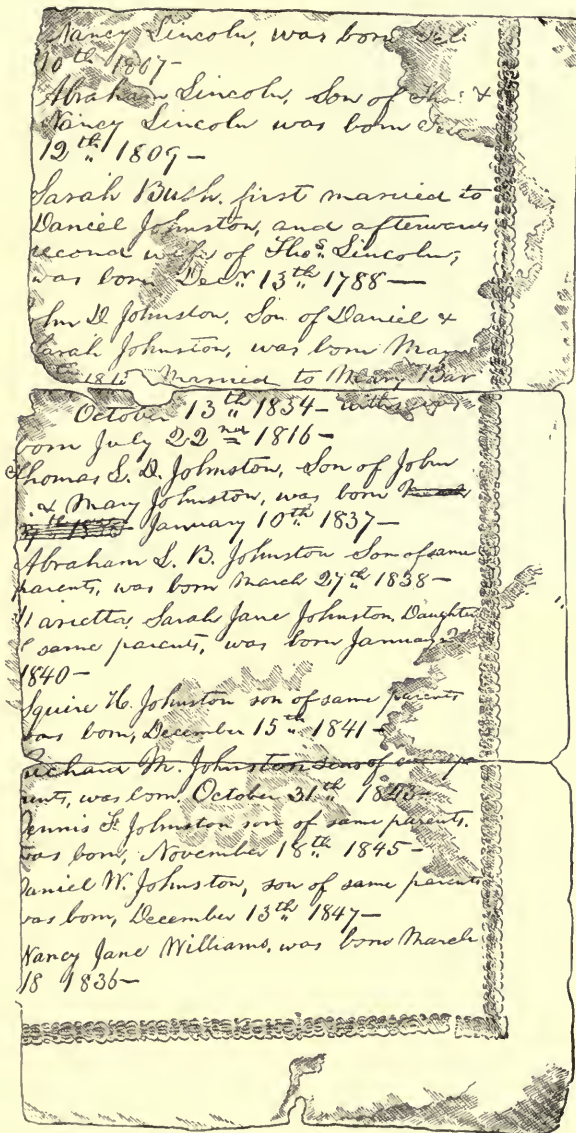 Nancy Lincoln, was born
10th 1807-
Abraham Lincoln, Son of Thos. &
Nancy Lincoln was born
12th 1809-
Sarah Bush, first married to
Daniel Johnston, and afterwards
second wife of Thos. Lincoln,
was born Decr. 13th 1788-
ohn D Johnston, Son of Daniel &
Sarah Johnston, was born May
Married to Mary Bar
October 13th 1834-
born July 22nd 1816-
Thomas L. D. Johnston, Son of John
& Mary Johnston, was born
January 10th 1837-
Abraham L. B. Johnston Son of same
parents, was born March 27th 1838-
arietta, Sarah Jane Johnston, Daughter
same parents, was born January
1840-
Squire H. Johnston son of same parents
was born, December 15th 1841-
Richard M. Johnston
rents, was born October 31th 1843-
Dennis F Johnston son of same parents.
was born, November 18th 1845-
Daniel W. Johnston, son of same parents
was born, December 13th 1847-
Nancy Jane Williams, was born March
18 1836-